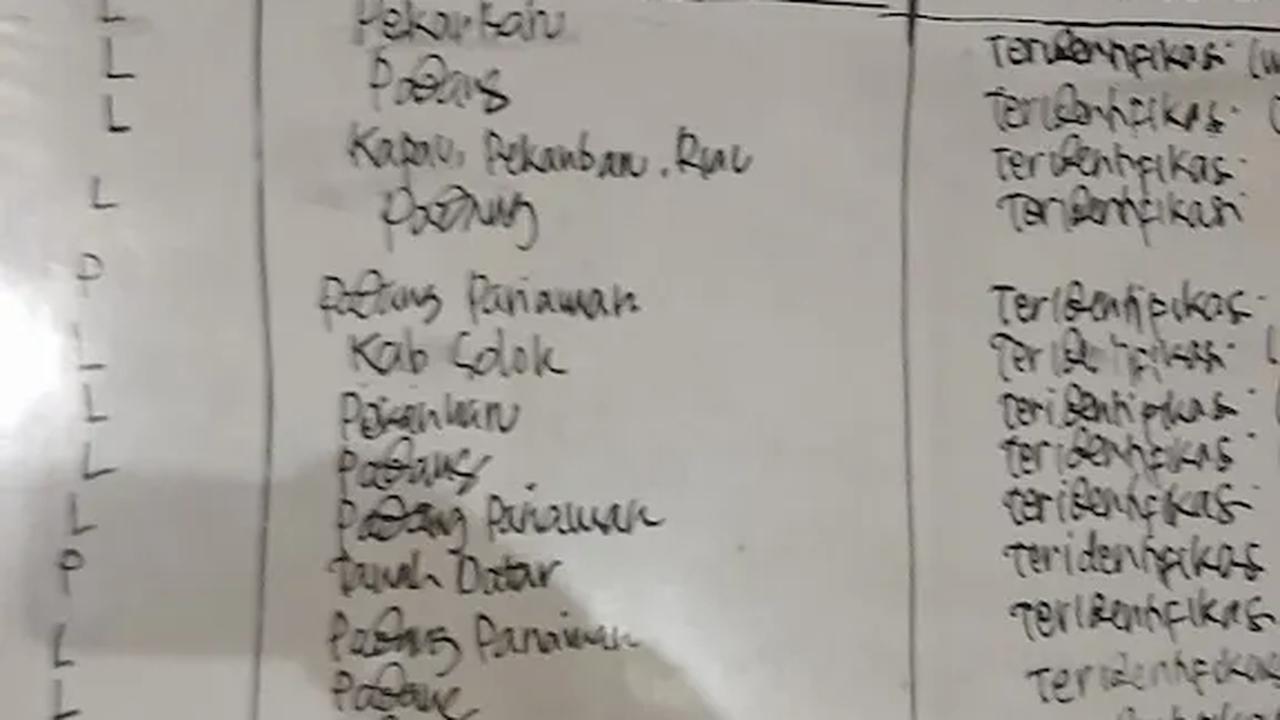 L Pekanbaru
L Padang Teridentifikasi
L Kapau, Pekanban. Riau Teridentifikasi
L Padang Teridentifikasi
Teridentifikasi
P Padang Pariaman Teridentifikasi
L Kab Solok Teridentifikasi
L Pekanbaru Teridentifikasi
L Padang teridentifikasi
L Padang Pariaman teridentifikasi
P Tanah Datar teridentifikasi
L Padang Pariaman Teridentifikasi
L Padang Teridentifikasi